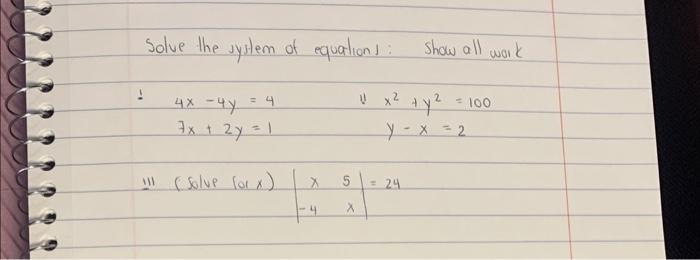 Solve the system of equations: Show all work
I 4x - 4y = 4
7x + 2y = 1
II x² + y² = 100
y - x = 2
III (solve for x) | x 5 | = 24
| -4 x |